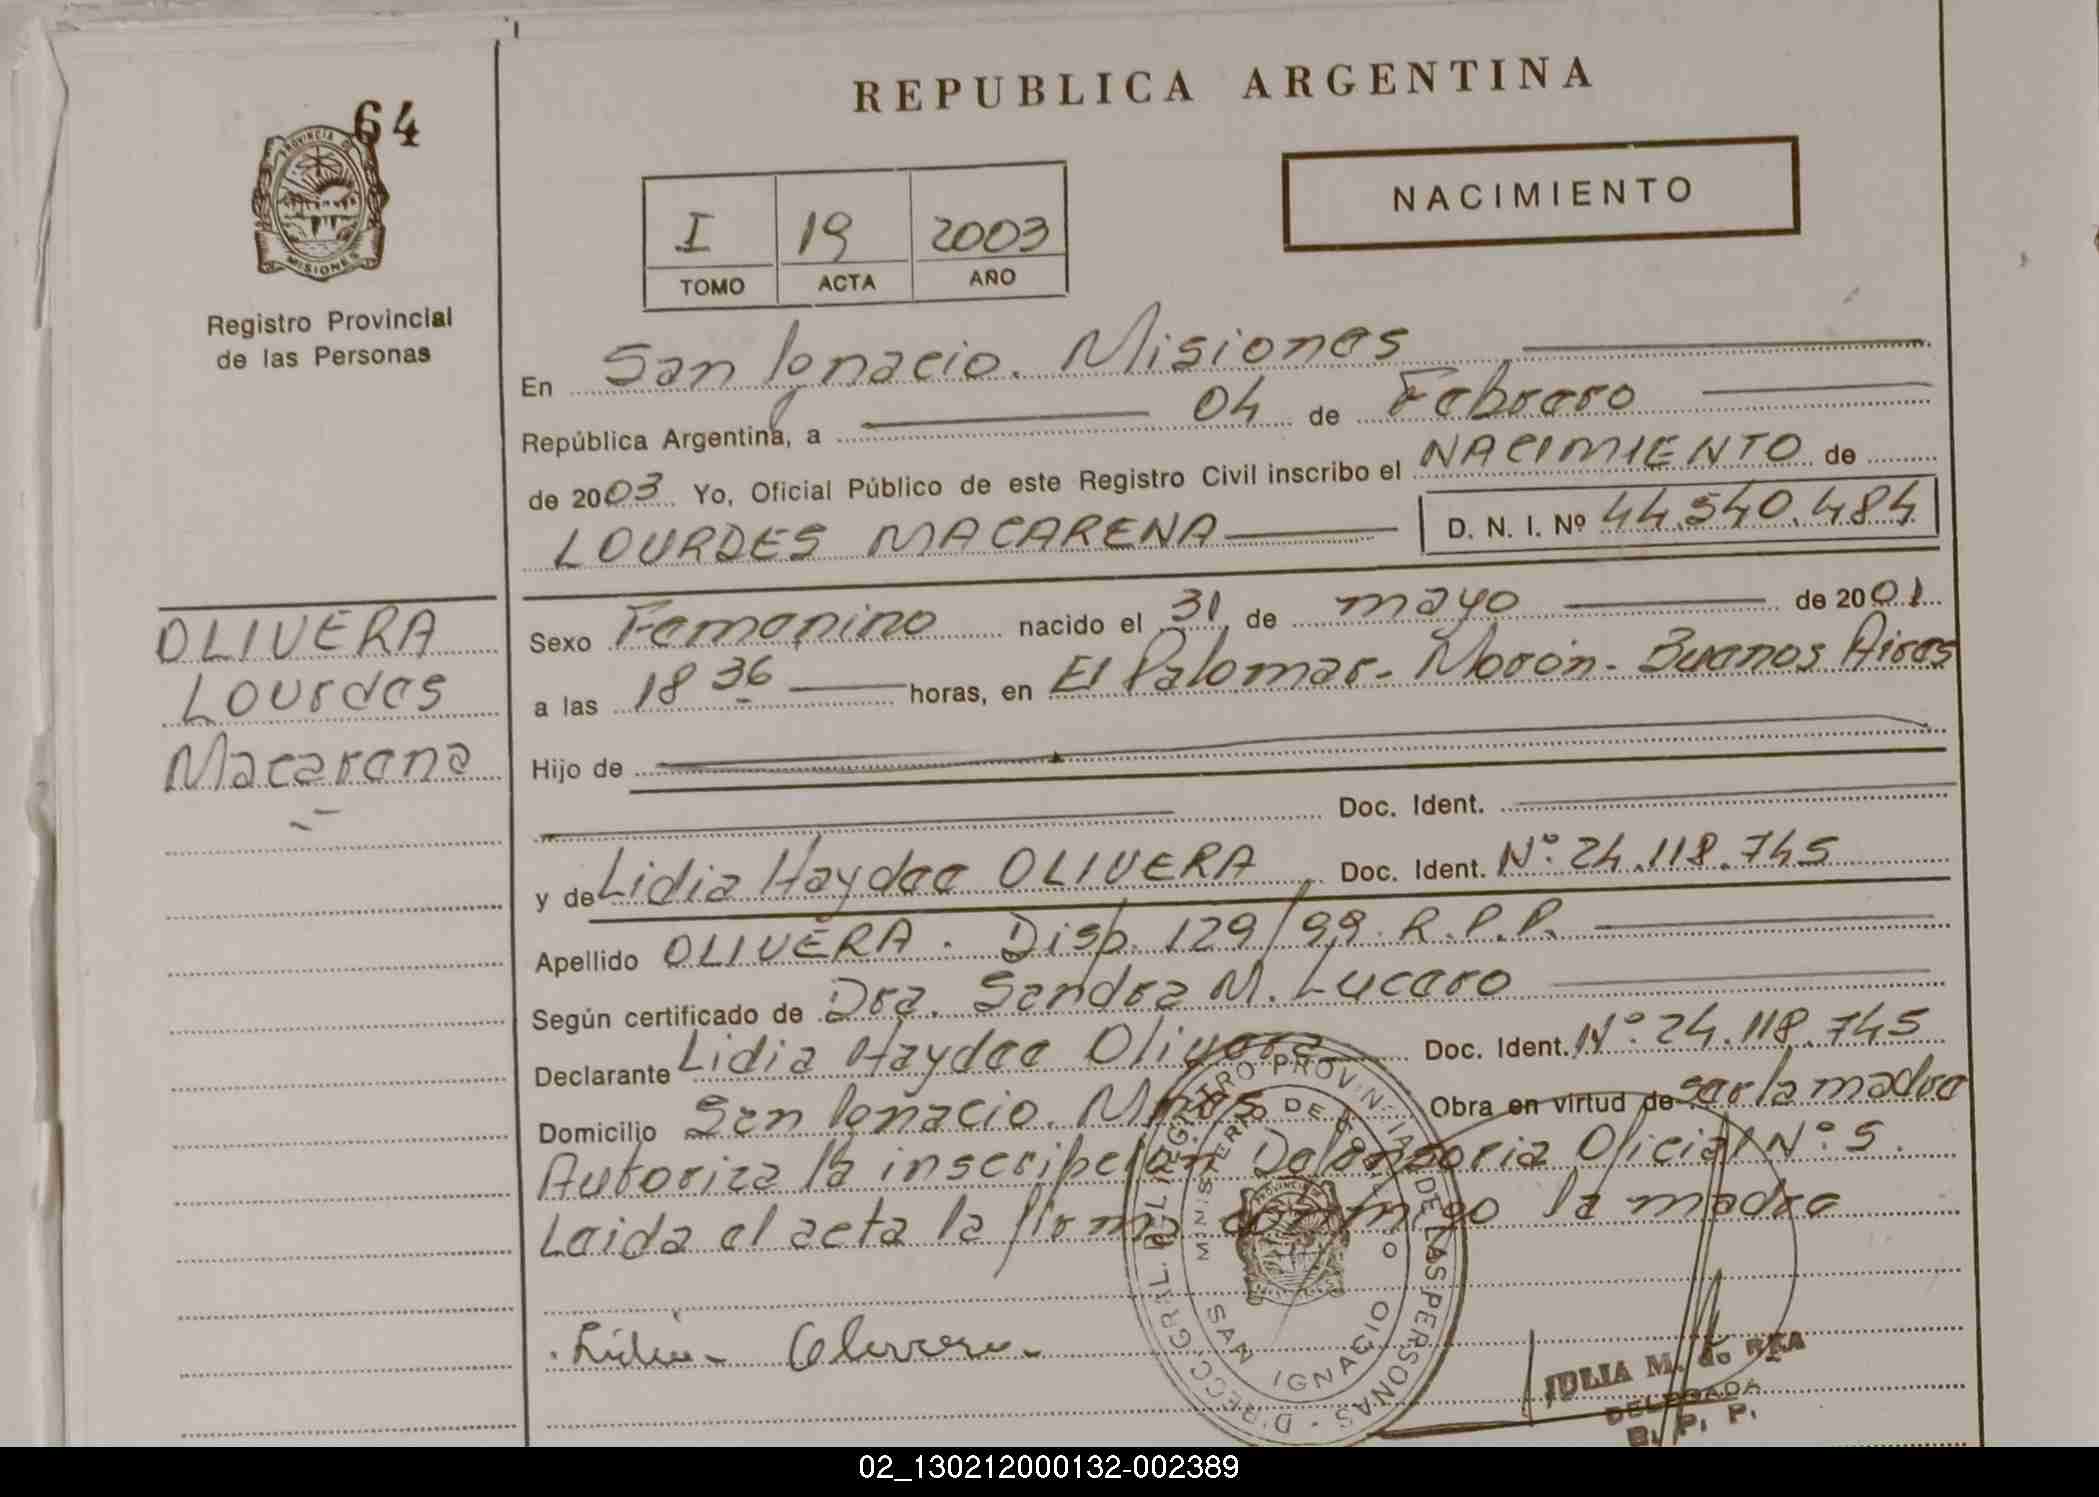 64
PROVINCIA DE
MISIONES
Registro Provincial
de las Personas
OLIVERA
Lourdes
Macarena
REPUBLICA ARGENTINA
NACIMIENTO
I 19 2003
TOMO ACTA AÑO
En San Ignacio. Misiones
República Argentina, a 04 de Febrero
de 2003 Yo, Oficial Público de este Registro Civil inscribo el NACIMIENTO de
LOURDES MACARENA D. N. I. Nº 44.540.484
Sexo Femenino nacido el 31 de mayo de 2001
a las 18 36 horas, en El Palomar- Morón- Buenos Aires
Hijo de
Doc. Ident.
y de Lidia Haydee OLIVERA Doc. Ident. Nº: 24.118.745
Apellido OLIVERA. Disp. 129/99. R.P.P.
Según certificado de Dra. Sandra M. Lucero
Declarante Lidia Haydee Olivera Doc. Ident. Nº: 24.118.745
Domicilio San Ignacio. Mnes Obra en virtud de ser la madre
Autoriza la inscripción Defensoria Oficial Nº: 5.
Leida el acta la firma conmigo la madre
Lidia Olivera
DIRECC. GRAL. DEL REGISTRO PROVINCIAL DE LAS PERSONAS
MINISTERIO DE GOBIERNO
SAN IGNACIO
JULIA M. de REA
DELEGADA
R. P. P.
02_130212000132-002389